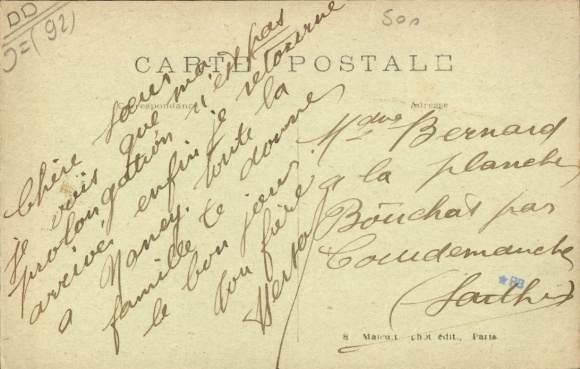 DD
J=(92)
50n
CARTE POSTALE
Correspondance
Adresse
Chère sœur
je vois que ma
prolongation n'est pas
arrivée enfin je retourne
a Nancy, toute la
famille te donne
le bon jour
ton frère
Mme Bernard
a la planche
Bouchat par
Coudemanche
(Sarthe)
phot édit., Paris